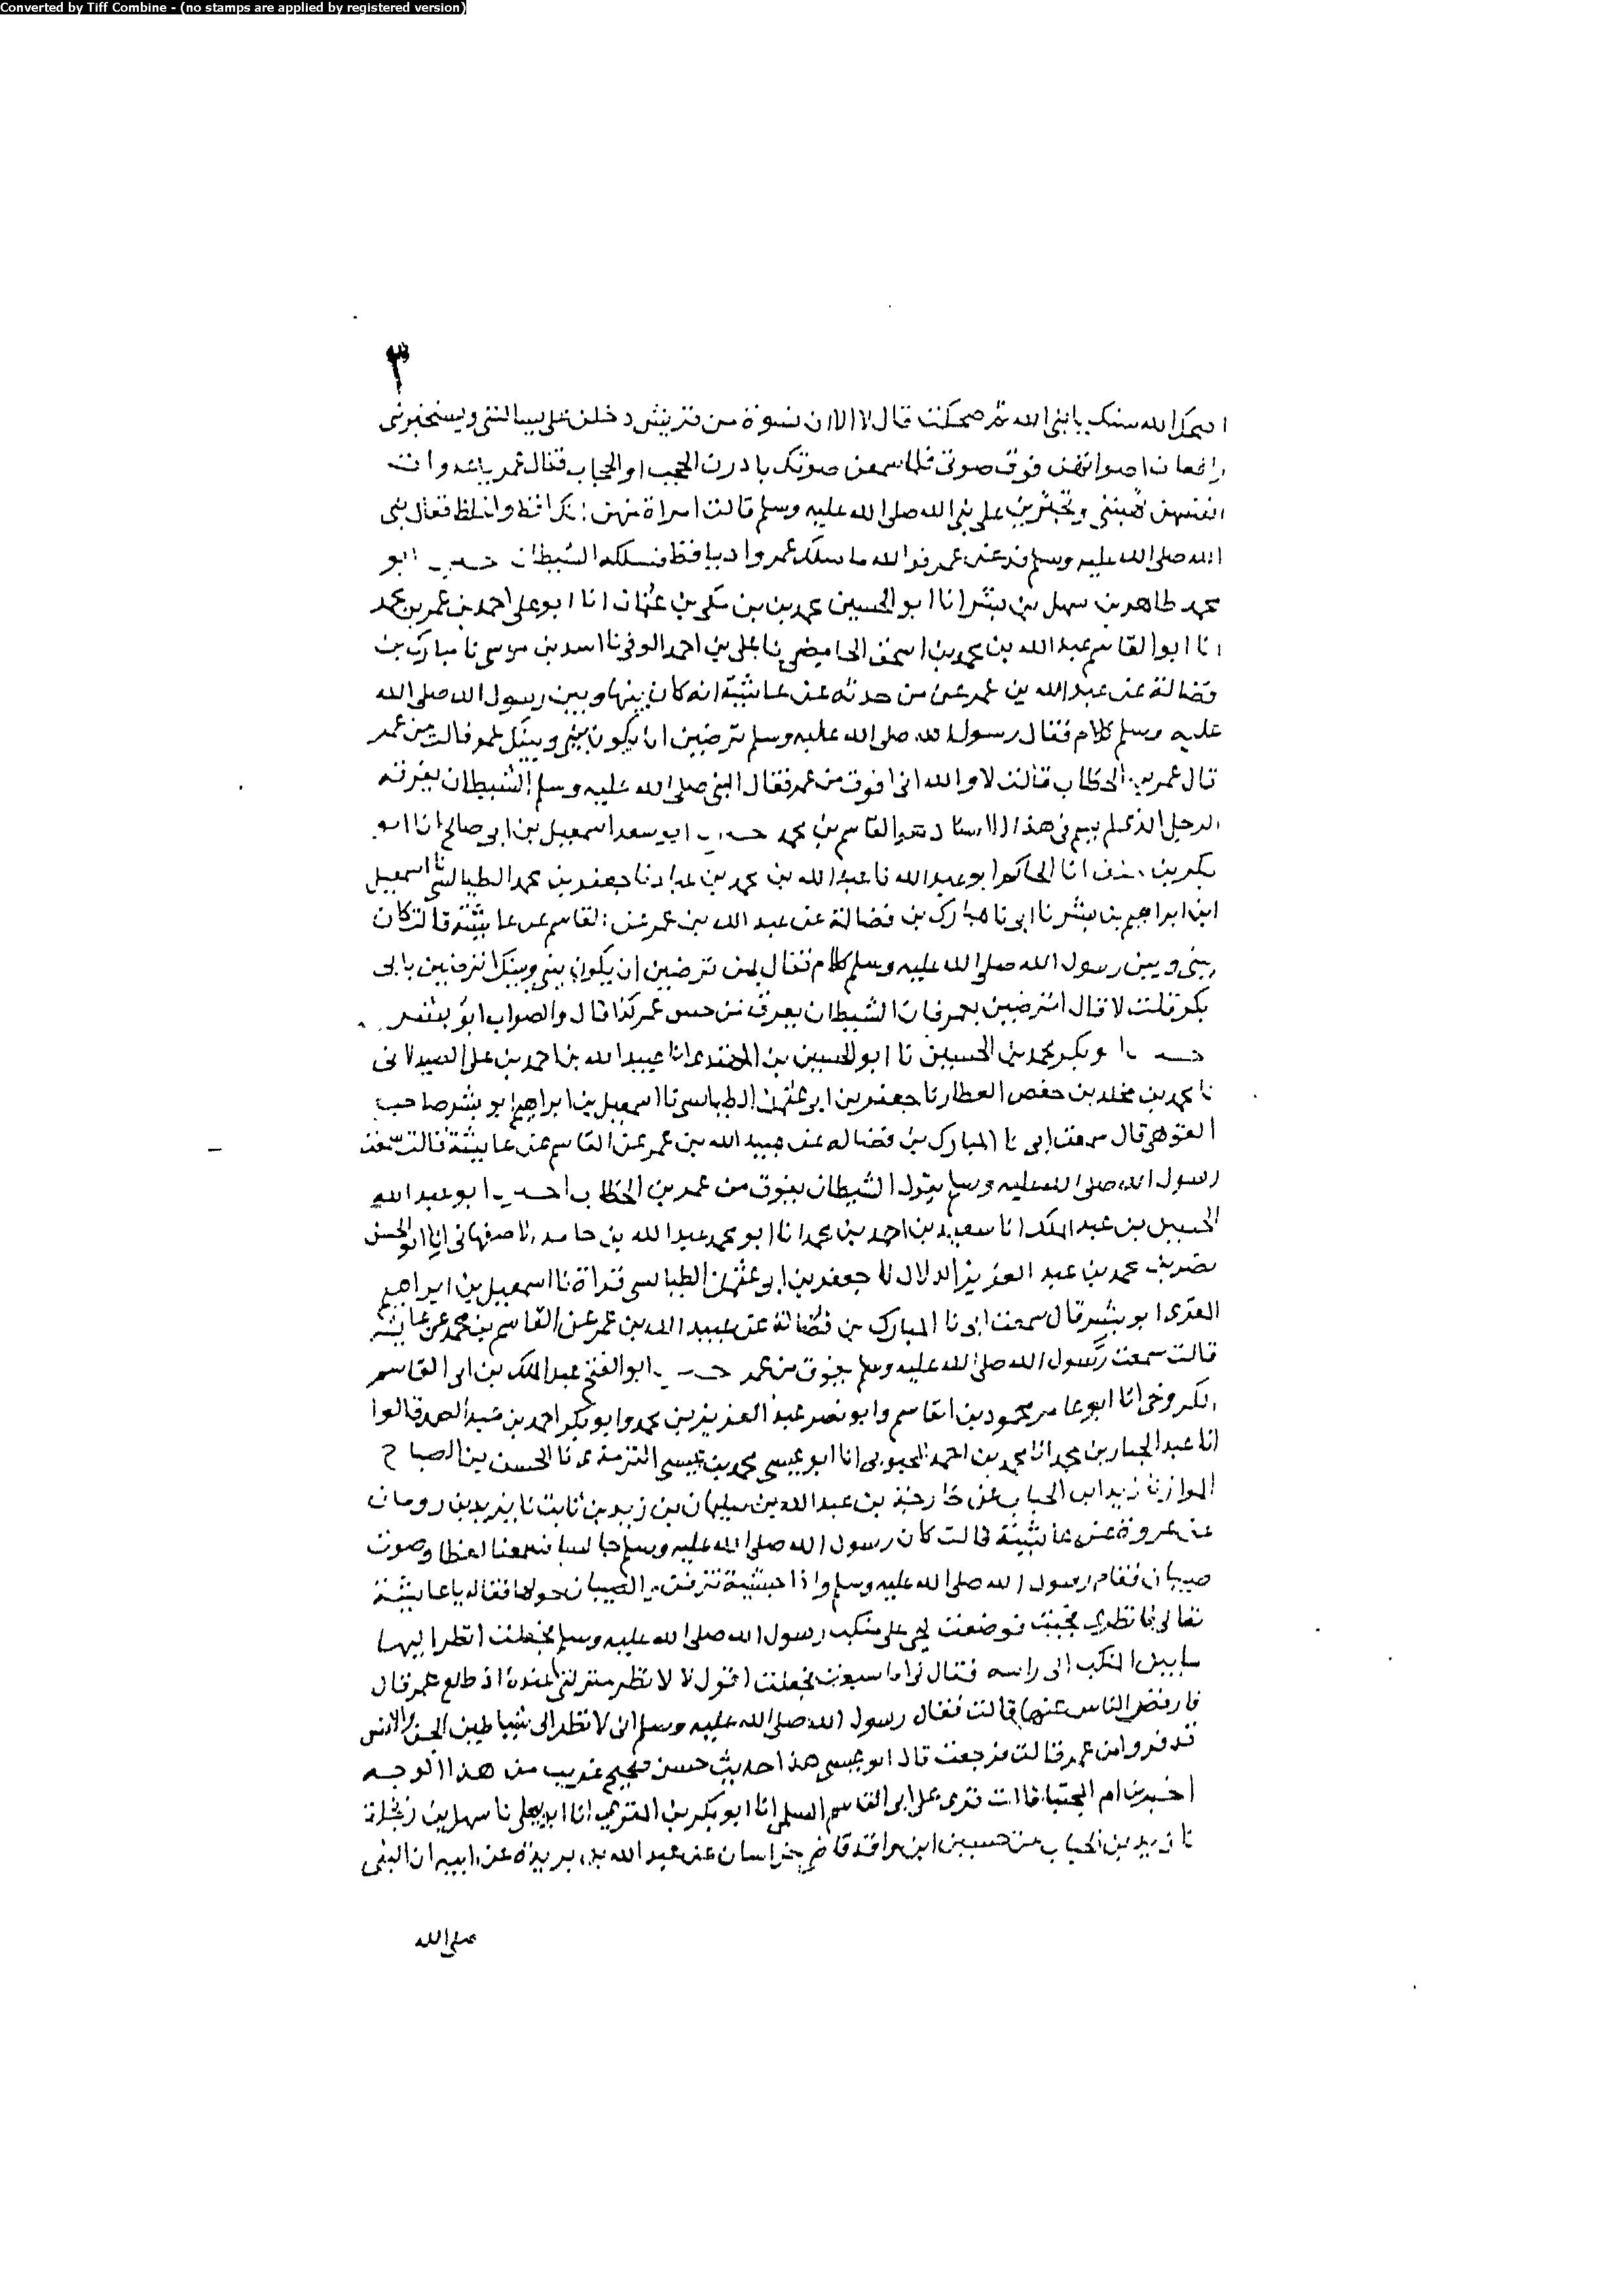 Converted by Tiff Combine - (no stamps are applied by registered version)
اضحك الله سنك يا نبى الله مم ضحكت قال لا الا ان نسوة من قريش دخلن على يسالننى ويستخبرونى
رافعات اصواتهن فوق صوتى فلما سمعن صوتك بادرن الحجب او الحجاب فقال عمر يا عدوات
انفسهن تهبننى وتجترين على نبى الله صلى الله عليه وسلم قالت امراة منهن انك افظ واغلظ فقال نبى
الله صلى الله عليه وسلم عن عمر فوالله ما سلك عمر واديا قط فسلكه الشيطان ابو
محمد طاهر بن سهل بن بشر انا ابو الحسين محمد بن بن مكى بن عثمان انا ابو على احمد بن عمر بن محمد
انا ابو القاسم عبد الله بن محمد بن اسحق الحاميضى نا على بن احمد الوفى نا اسد بن موسى نا مبارك بن
فضالة عن عبد الله بن عمر عن من حدثه عن عايشة انه كان بينها وبين رسول الله صلى الله
عليه وسلم كلام فقال رسول الله صلى الله عليه وسلم ترضين ان يكون بينى وبينك عمر قالت من عمر
قال عمر بن الخطاب قالت لا والله انى افرق من عمر فقال النبى صلى الله عليه وسلم الشيطان يفرقه
الرجل الذى لم يسم فى هذا الاسناد هو القاسم بن محمد ابو سعد اسمعيل بن ابى صالح انا ابو
بكر بن خلف انا الحاكم ابو عبد الله نا عبد الله بن محمد بن عباد نا جعفر بن محمد الطيالسى نا اسمعيل
ابن ابراهيم بن بشر نا ابى نا مبارك بن فضالة عن عبد الله بن عمر عن القاسم عن عايشة قالت كان
بينى وبين رسول الله صلى الله عليه وسلم كلام فقال لمن ترضين ان يكون بينى وبينك اترضين بابى
بكر قلت لا قال اترضين بعمر فان الشيطان يفرق من حس عمر كذا قال والصواب ابو بشر
ابو بكر محمد بن الحسين نا ابو الحسين بن المهتدى انا عبيد الله بن احمد بن على الصيدلانى
نا محمد بن مخلد بن حفص العطار نا جعفر بن ابى عثمان الطيالسى نا اسمعيل بن ابراهيم ابو بشر صاحب
القوهى قال سمعت ابى نا المبارك بن فضاله عن عبيد الله بن عمر عن القاسم عن عايشة قالت سمعت
رسول الله صلى الله عليه وسلم يقول الشيطان يفرق من عمر بن الخطاب ابو عبد الله
الحسين بن عبد الملك انا سعيد بن احمد بن محمد انا ابو محمد عبد الله بن حامد الاصفهانى انا ابو الحسن
نصر بن محمد بن عبد العزيز الدلال نا جعفر بن ابى عثمان الطيالسى قراة نا اسمعيل بن ابراهيم
ابو بشر قال سمعت ابى نا المبارك بن فضالة عن عبيد الله بن عمر عن القاسم بن محمد عن عايشة
قالت سمعت رسول الله صلى الله عليه وسلم يفرق من عمر ابو الفتح عبد الملك بن ابى القاسم
الكروخى انا ابو عامر محمود بن القاسم وابو نصر عبد العزيز بن محمد وابو بكر احمد بن عبد الصمد قالوا
انا عبد الجبار بن محمد انا محمد بن احمد المحبوبى انا ابو عيسى محمد بن عيسى الترمذى نا الحسن بن الصباح
زيد ابن الحباب عن خارجة بن عبد الله بن سليمان بن زيد بن ثابت نا يزيد بن رومان
عن عروة عن عايشة قالت كان رسول الله صلى الله عليه وسلم جالسا فسمعنا لغطا وصوت
صبيان فقام رسول الله صلى الله عليه وسلم واذا حبشية تزفن والصبيان حولها فقال يا عايشة
تعالى فانظرى فجيت فوضعت لحى على منكب رسول الله صلى الله عليه وسلم فجعلت انظر اليها
ما بين المنكب الى راسه فقال لى اما سبعت فجعلت اقول لا لانظر منزلتى عنده اذ طلع عمر قال
فارفض الناس عنها قالت فقال رسول الله صلى الله عليه وسلم انى لانظر الى شياطين الجن والانس
قد فروا من عمر قالت فرجعت قال ابو عيسى هذا حديث حسن صحيح غريب من هذا الوجه
ام المجتبا قالت قرى على ابى القاسم السلمى انا ابو بكر بن المقرى انا ابو يعلى نا سهل بن زنجلة
نا زيد بن الحباب عن حسين ابن واقد قاضى خراسان عن عبد الله بن بريدة عن ابيه ان النبى
صلى الله